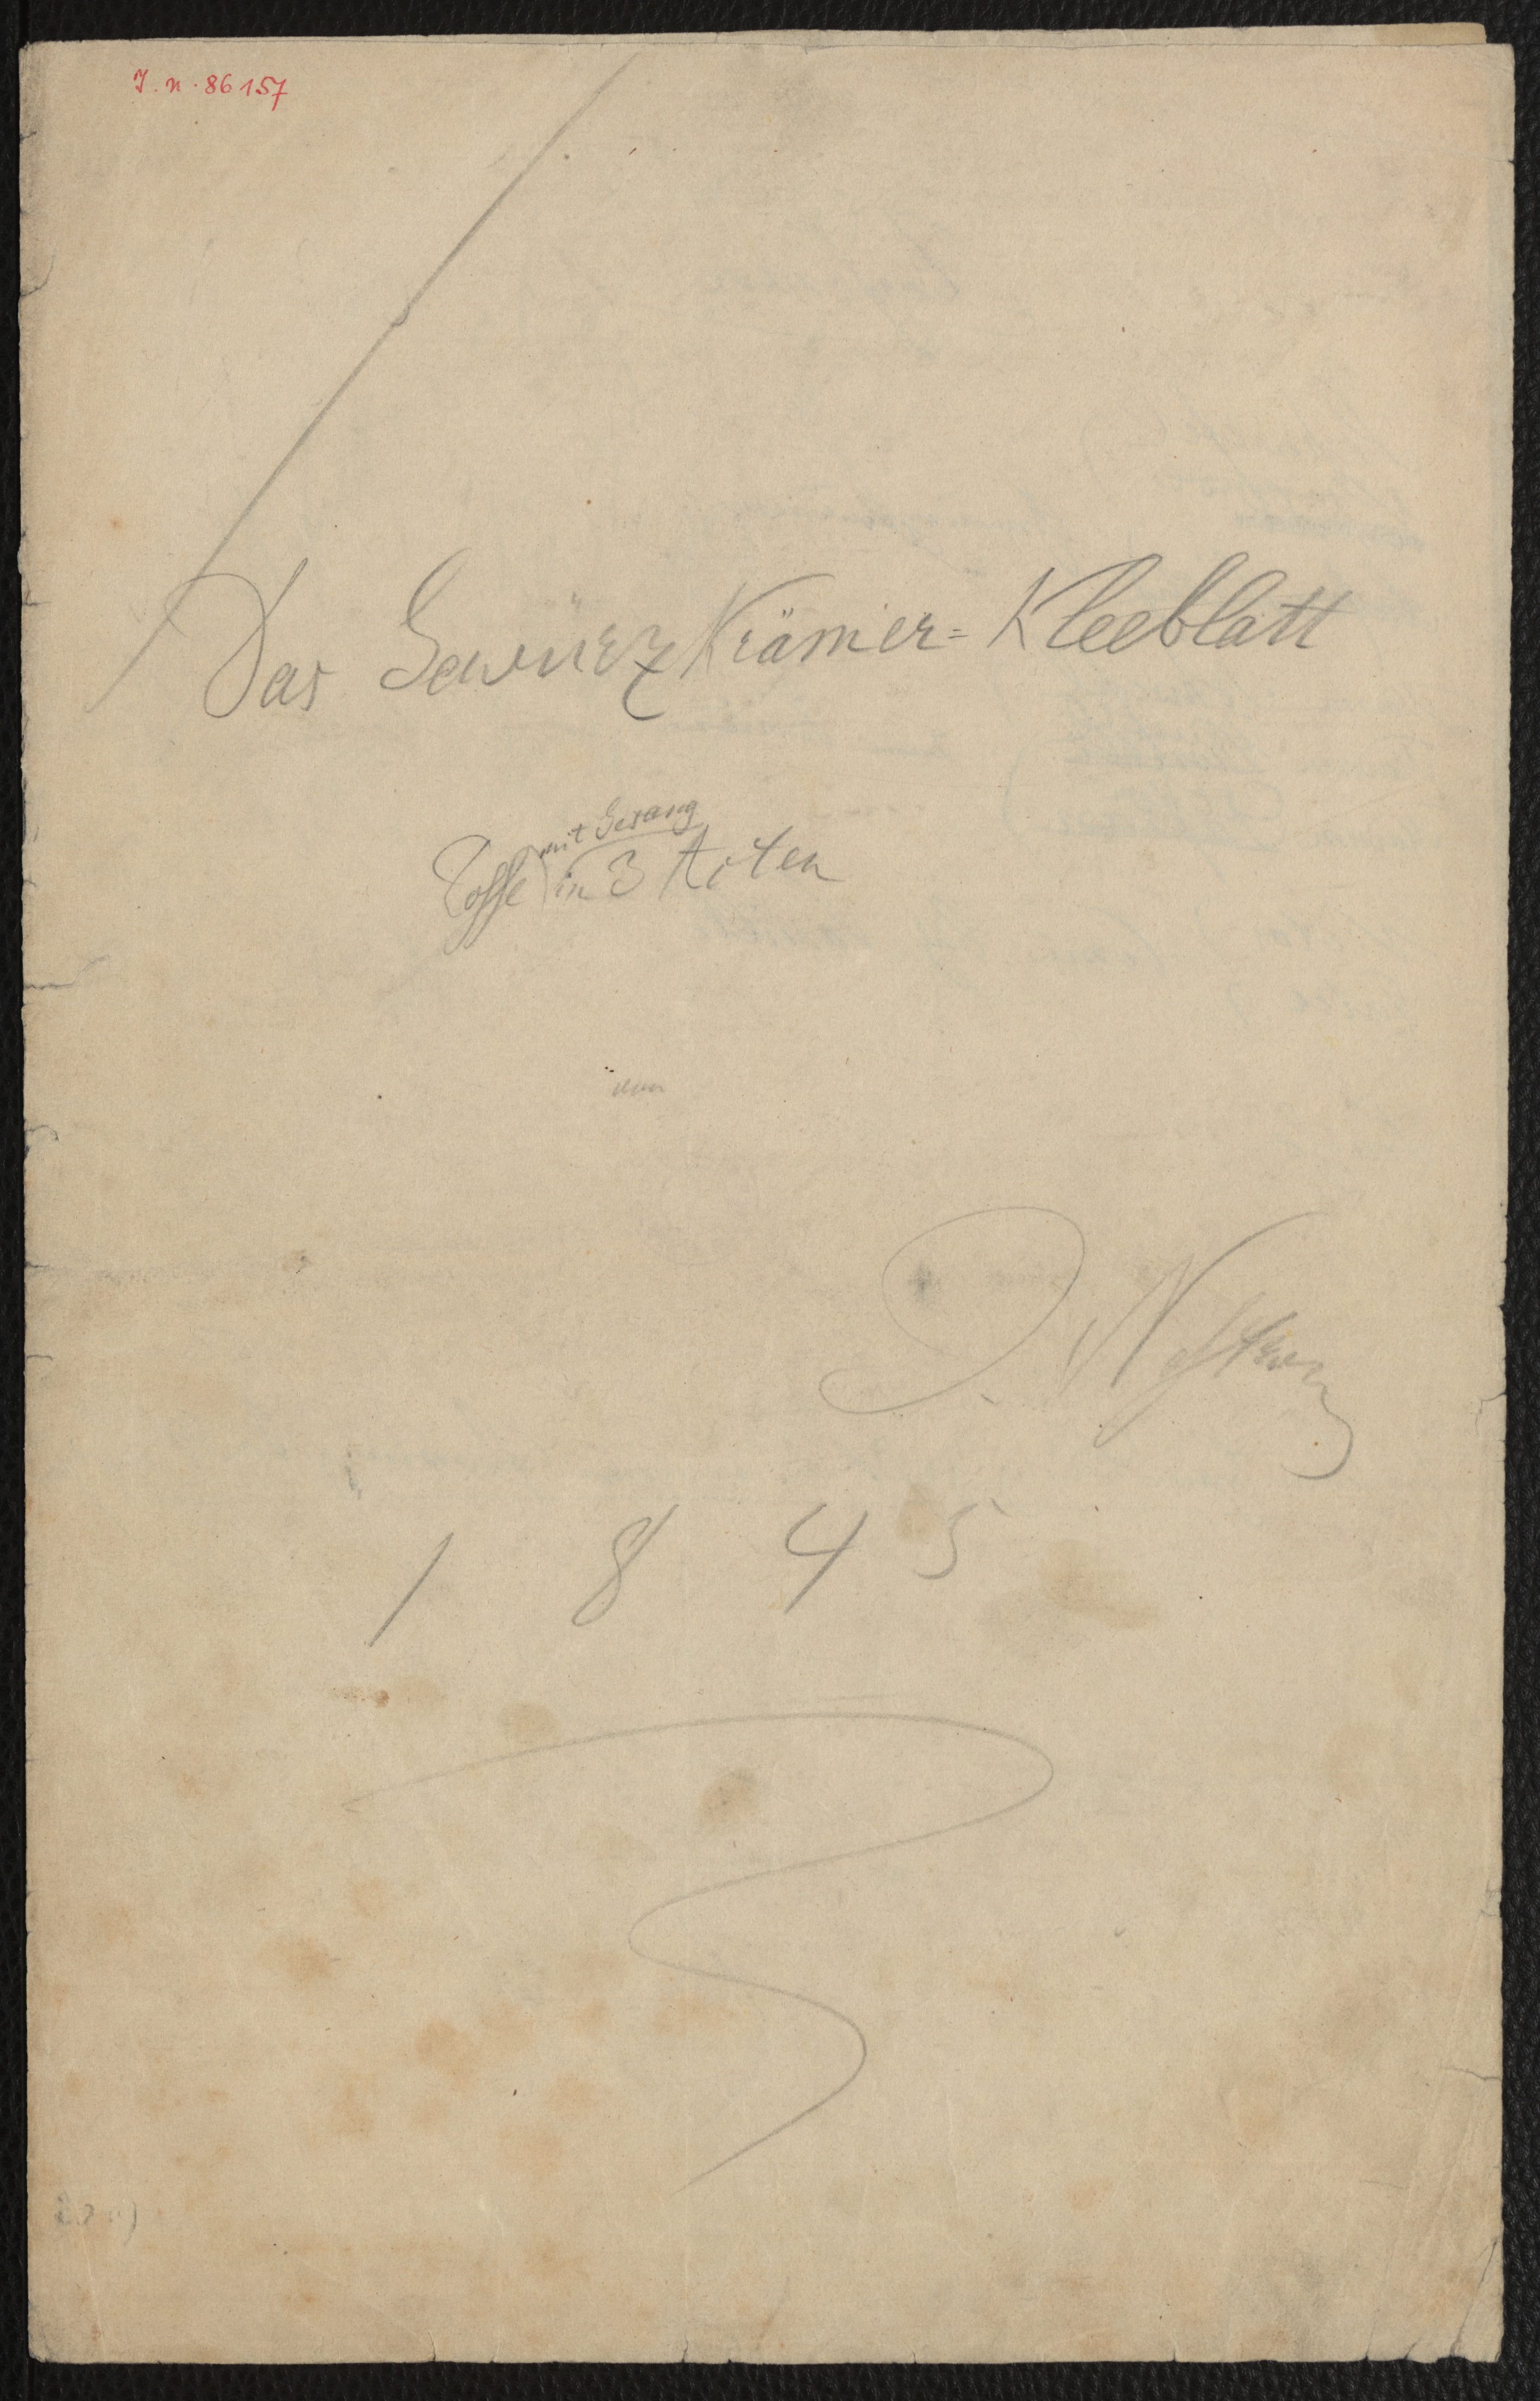 J. N. 86157
Das GewürzKrämer=Kleeblatt
mit Gesang
Posse in 3 Acten
von
J. Nestroy
1845